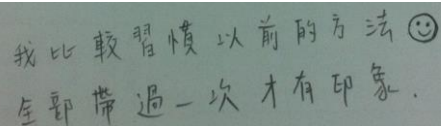 我比較習慣以前的方法☺
全部帶過一次才有印象.